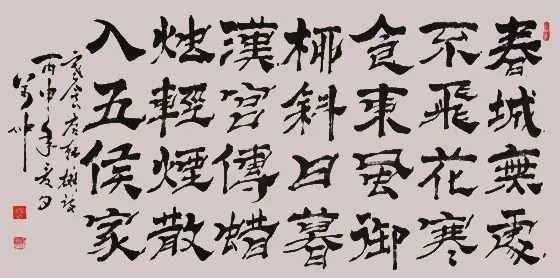 春城無處
不飛花寒
食東風御
柳斜日暮
漢宮傳蜡
烛輕煙散
入五侯家
寒食唐韓翃詩
丙申年